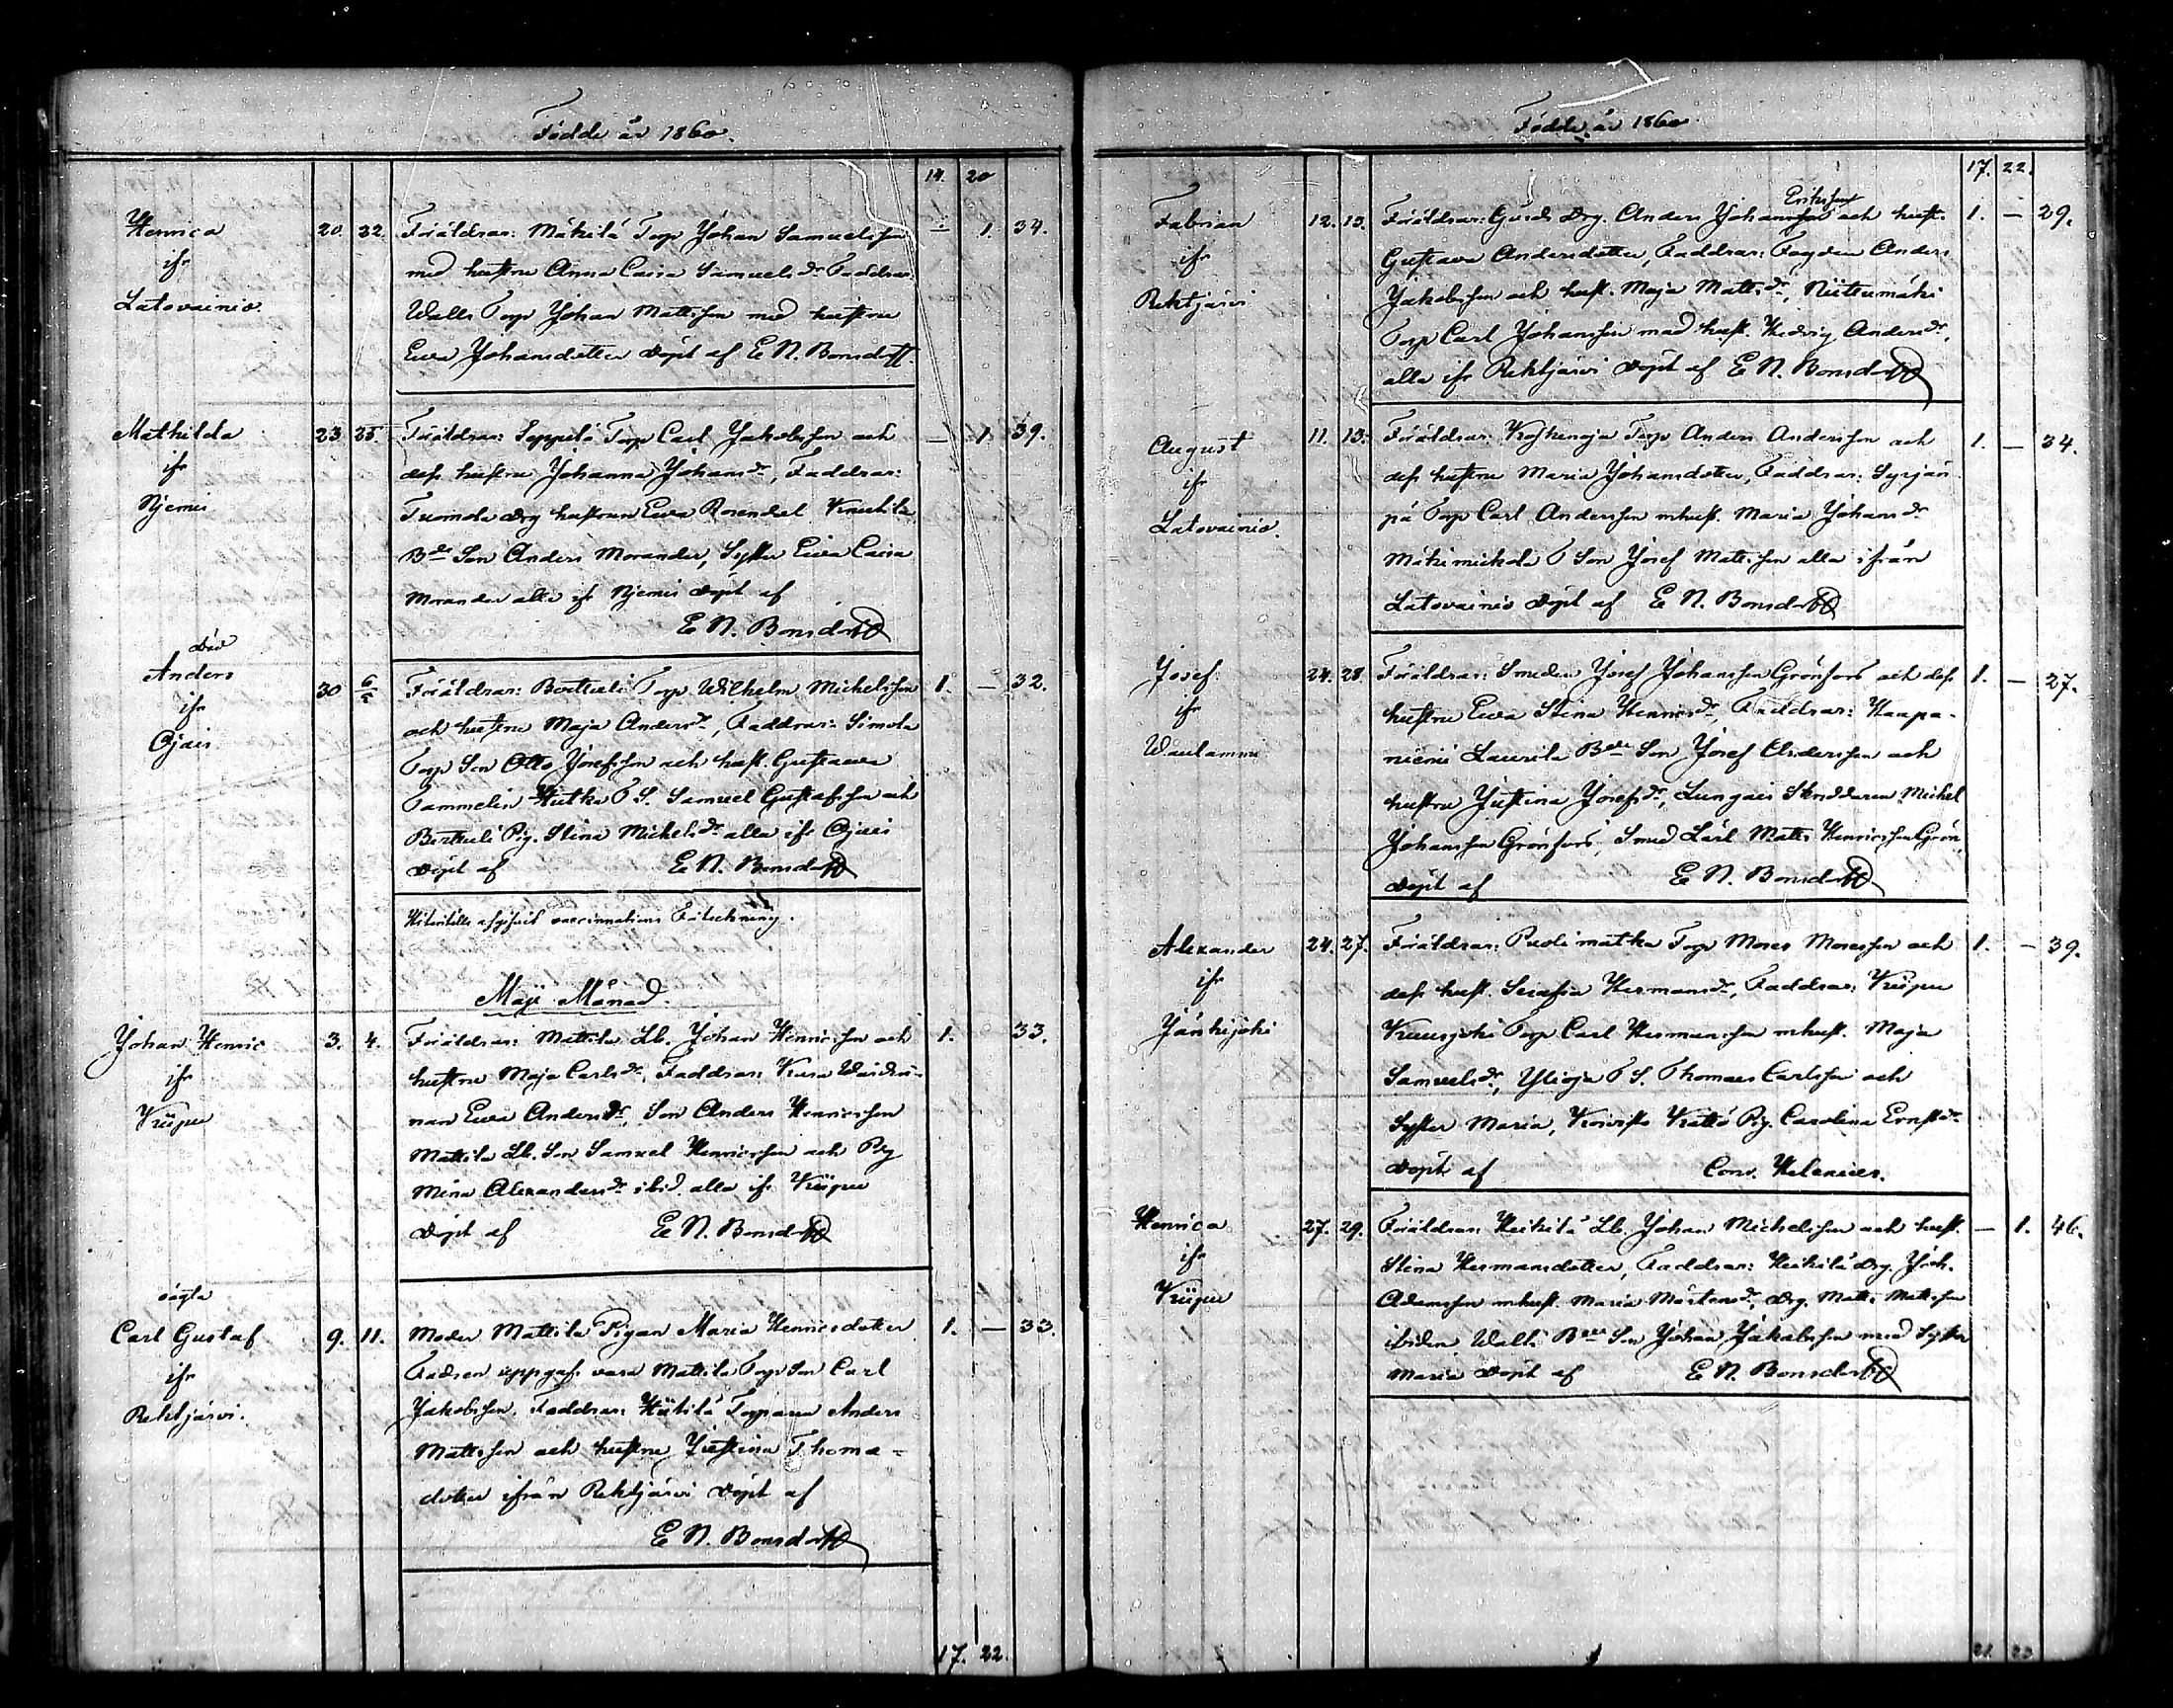 Födde år 1860.
14. 20
Henrica 20. 22. Föräldrar: Mäkilä Torp Johan Samuelsson ÷ 1. 34.
ifr med hustru Anna Caisa Samuels dr Faddrar
Latovainio. Walli Torp Johan Mattsson med hustru
Eva Johansdotter döpt af E N. Bonsdorff.
Mathilda 23 25 Föräldrar: Seppelä Torp Carl Jakobsson och — 1 39.
ifr dess hustru Johanna Johans dr, Faddrar:
Njemis Tuomola Drg hustrun Eva Rosendal
B de Son Anders Morander, Syster Eva Caisa
Morander alla if Njemis döpt af
E N. Bonsdorff
död
Anders 30 6/5 Föräldrar: Bertteli Torp Wilhelm Michelsson 1. — 32.
ifr och hustru Maja Anders dr, Faddrar: Simola
Ojais Torp Son Otto Josefsson och hust. Gustaava
Tammelin T S. Samuel Gustafsson och
Bertteli Pig. Stina Michels dr alla ifr Ojais
döpt af E N. Bonsdorff
Hitintills afgifvit vaccinnations Förtechning.
Maji Månad.
Johan Henric 3. 4. Föräldrar: Mattila Lb. Johan Henricsson och 1. 33.
ifr hustru Maja Carls dr, Faddrar:
Kriipu nan Eva Anders dr, Son Anders Henricsson
Mattila Lb. Son Samuel Henricsson och Pig
Mina Alexanders dr ibid. alla ifr Kriipu
döpt af E N. Bonsdorff
oägta
Carl Gustaf 9. 11. Moder Mattila Pigan Maria Henricsdotter 1. — 33.
ifr Fadren uppgafs vara Mattila Torp Son Carl
Rehtjärvi. Jakobsson. Faddrar: Hiitilä Torparen Anders
Mattsson och hustru Justina Thoma-
dotter ifrån Rehtjärvi döpt af
E N. Bonsdorff
17. 22.
Födde år 1860
17. 22.
Eriksson
Fabian 12. 13. Föräldrar: Gårds Drg. Anders Johansson och hust. 1. — 29.
ifr Gustava Andersdotter, Faddrar: Fogden Anders
Rehtjärvi Jakobsson och hust. Maja Matts dr, Niittumäki
Torp Carl Johansson med hust. Hedvig Anders dr,
alla ifr Rehtjärvi döpt af E N. Bonsdorff
August 11. 13. Föräldrar: Koskenoja Torp Anders Andersson och 1. — 34.
ifr dess hustru Maria Johansdotter, Faddrar: Syrjän
Latovainio. pä Torp Carl Andersson m hust. Maria Johans dr
Mäkimickola T Son Josef Mattsson alla ifrån
Latovainio döpt af E N. Bonsdorff
Josef 24. 28 Föräldrar: Smeden Josef Johansson Grönfors och dess 1. — 27.
ifr hustru Eva Stina Henrics dr, Faddrar: Haapa-
Waulammi niemi Laurila B de Son Josef Andersson och
hustru Justina Josefs dr, Lungais Skräddaren Michel
Johansson Grönfors, Smed Lärl. Matts Henricsson Grön,
döpt af E N. Bonsdorff
Alexander 24. 27. Föräldrar: Puolimatka Torp Moses Mosesson och 1. — 39.
ifr dess hust. Serafia Hermans dr, Faddrar: Kriipu
Jänhijoki Torp Carl Hermansson m hust. Maja
Samuels dr, Ylioja T S. Thomas Carlsson och
Syster Maria, Koivisto Pig. Carolina Ernsts dr
döpt af Cons. Helenius.
Henrica 27. 29. Föräldrar: Heikilä Lb. Johan Michelsson och hust. — 1. 46.
ifr Stina Hermansdotter, Faddrar: Heikilä Drg. Joh.
Kriipu Adamsson m hust. Maria Mårtens dr, Drg. Matts Mattsson
ibidem, Walli B de Son Johan Jakobsson med Syster
Maria döpt af E N. Bonsdorff
21. 23